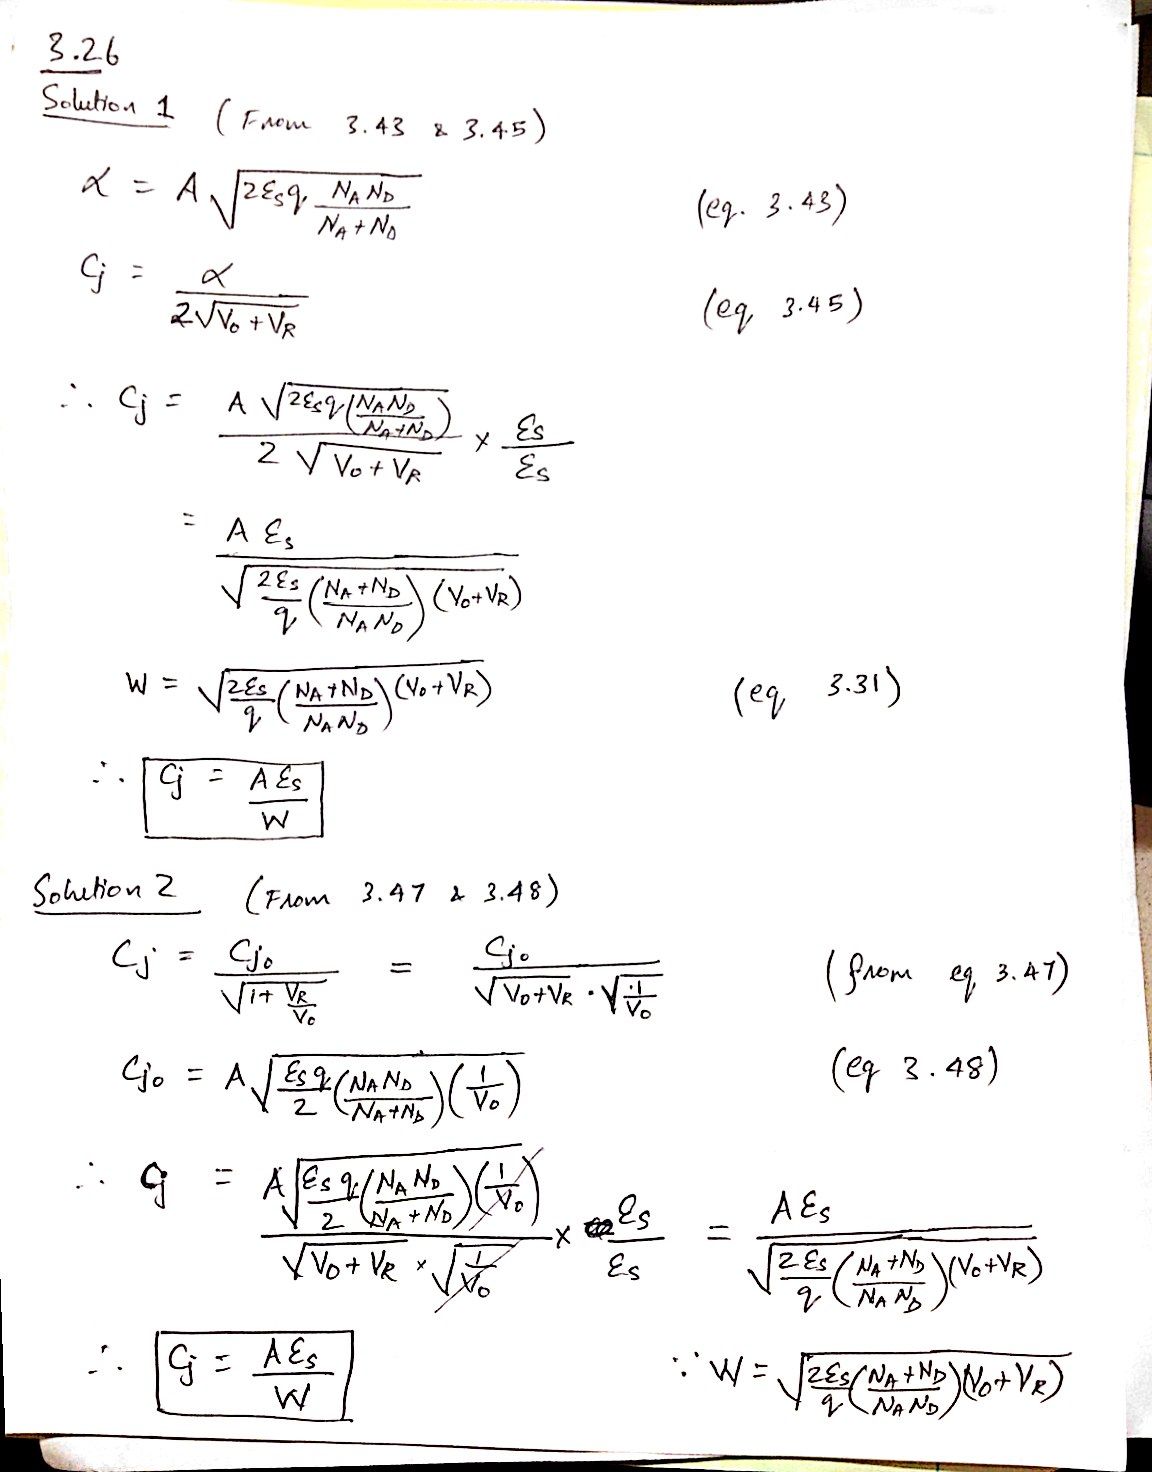 3.26
Solution 1 (From 3.43 & 3.45)
α = A √(2εsq (NA ND)/(NA + ND)) (eq. 3.43)
Cj = α / (2√(V0 + VR)) (eq 3.45)
∴ Cj = A √(2εsq ((NA ND)/(NA + ND))) / (2 √(V0 + VR)) × εs/εs
= A εs / √((2εs/q) ((NA + ND)/(NA ND)) (V0 + VR))
W = √((2εs/q) ((NA + ND)/(NA ND)) (V0 + VR)) (eq 3.31)
∴ Cj = A εs / W
Solution 2 (From 3.47 & 3.48)
Cj = Cj0 / √(1 + VR/V0) = Cj0 / (√(V0 + VR) · √(1/V0)) (from eq 3.47)
Cj0 = A √((εs q/2) ((NA ND)/(NA + ND)) (1/V0)) (eq 3.48)
∴ Cj = A √((εs q/2) ((NA ND)/(NA + ND)) (1/V0)) / (√(V0 + VR) × √(1/V0)) × εs/εs = A εs / √((2εs/q) ((NA + ND)/(NA ND)) (V0 + VR))
∴ Cj = A εs / W ∵ W = √((2εs/q) ((NA + ND)/(NA ND)) (V0 + VR))